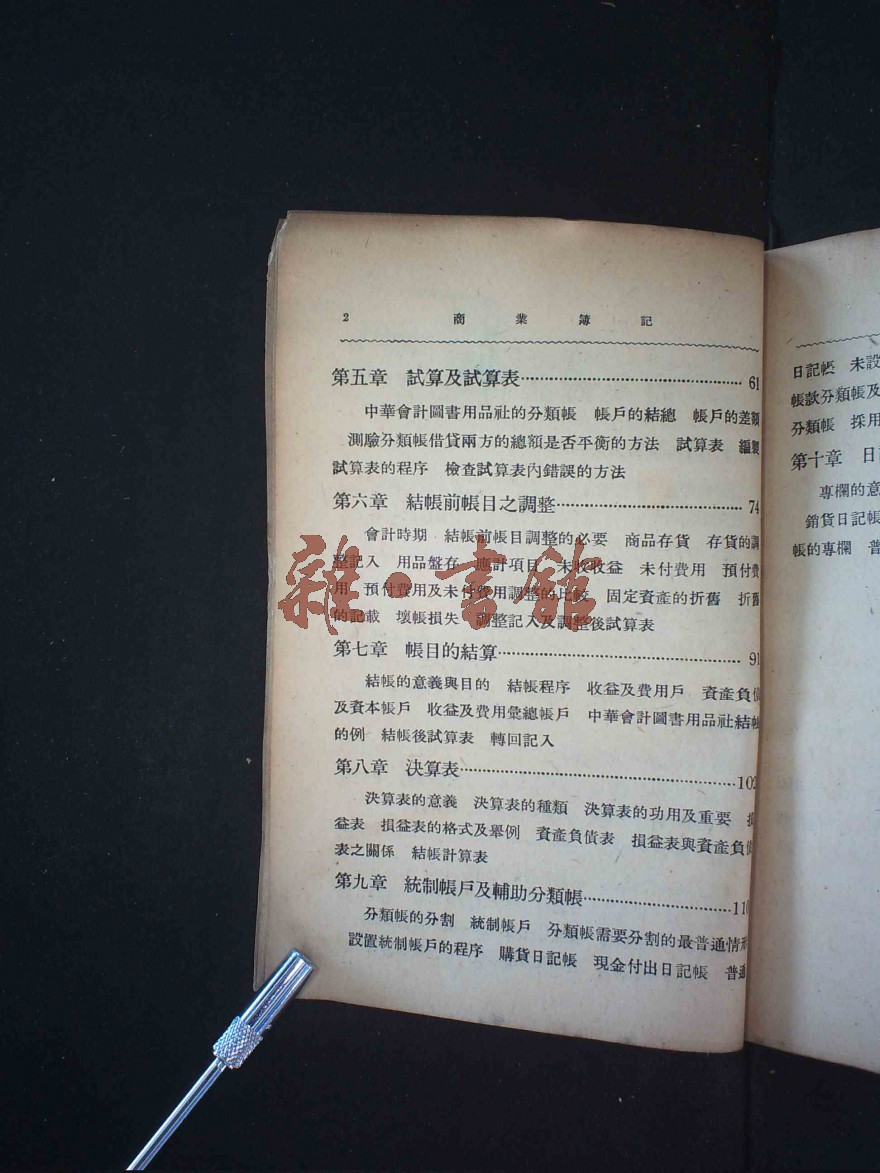 2 商業簿記
第五章 試算及試算表 61
中華會計圖書用品社的分類帳 帳戶的結總 帳戶的差額
測驗分類帳借貸兩方的總額是否平衡的方法 試算表 編製
試算表的程序 檢查試算表內錯誤的方法
第六章 結帳前帳目之調整 74
會計時期 結帳前帳目調整的必要 商品存貨 存貨的調
整記入 用品盤存 應計項目 未收收益 未付費用 預付費
用 預付費用及未付費用調整的比較 固定資產的折舊 折舊
的記載 壞帳損失 調整記入及調整後試算表
第七章 帳目的結算 91
結帳的意義與目的 結帳程序 收益及費用戶 資產負債
及資本帳戶 收益及費用彙總帳戶 中華會計圖書用品社結帳
的例 結帳後試算表 轉回記入
第八章 決算表 102
決算表的意義 決算表的種類 決算表的功用及重要 損
益表 損益表的格式及舉例 資產負債表 損益表與資產負債
表之關係 結帳計算表
第九章 統制帳戶及輔助分類帳 11
分類帳的分割 統制帳戶 分類帳需要分割的最普通情形
設置統制帳戶的程序 購貨日記帳 現金付出日記帳 普通
日記帳 未設
帳款分類帳及
分類帳 採用
第十章 日
專欄的意
銷貨日記帳
帳的專欄 普
雜·書館